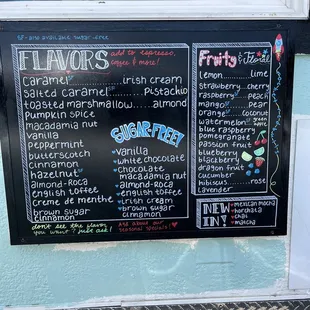 SF = also available sugar-free
FLAVORS add to espresso, coffee & more!
Caramel SF ........ irish cream
salted caramel ........ pistachio
toasted marshmallow ..... almond
Pumpkin spice
macadamia nut
vanilla
peppermint
butterscotch
cinnamon
hazelnut SF
almond-roca
english toffee
creme de menthe
brown sugar
cinnamon
SUGAR-FREE
vanilla
white chocolate
chocolate
macadamia nut
almond-Roca
english toffee
Irish cream
brown sugar
cinnamon
don't see the flavor
you want? Just ask!
Ask about our
Seasonal Specials!
Fruity & Floral
lemon ........ lime
strawberry cherry
raspberry SF peach
mango SF .... pear
orange ... coconut
watermelon
green apple
blue raspberry
pomegranate
passion fruit
blueberry
blackberry
dragon fruit
cucumber
hibiscus ..... rose
lavender
NEW IN!
mexican mocha
horchata
chai
matcha